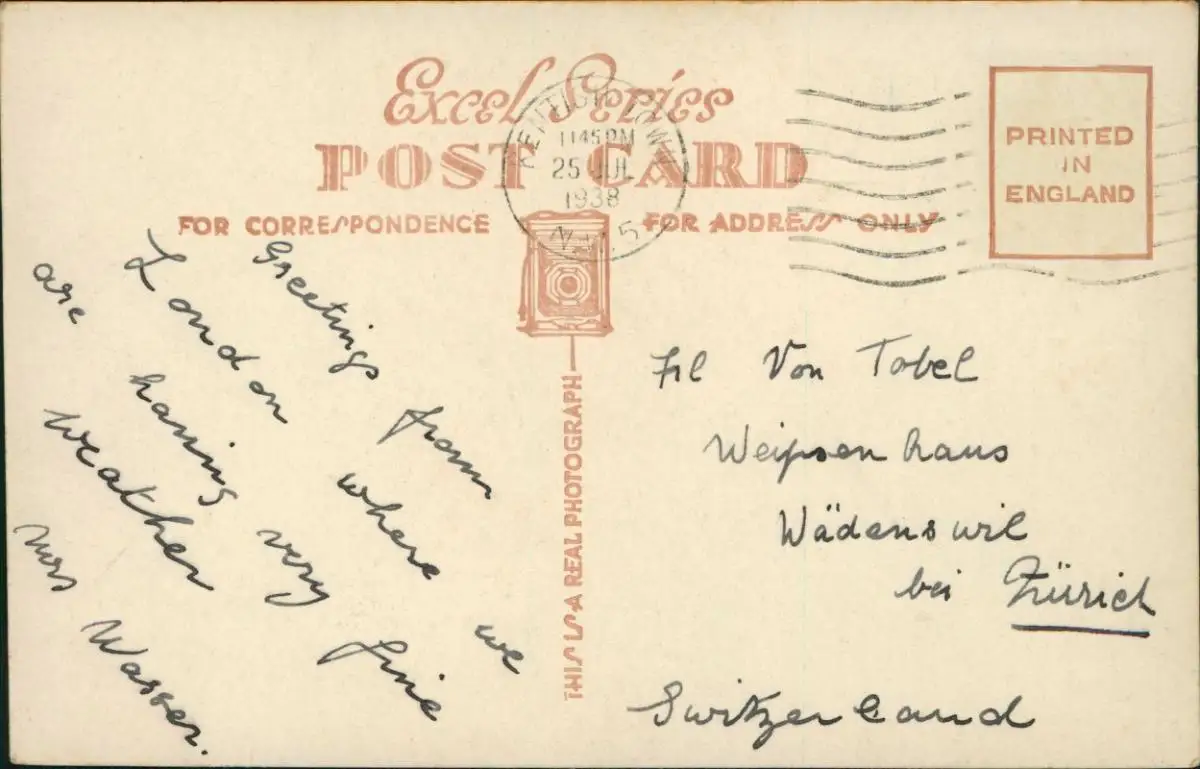 Excel Series
POST CARD
FOR CORRESPONDENCE
FOR ADDRESS ONLY
PRINTED
IN
ENGLAND
KENTISH TOWN
11 45 PM
25 JUL
1938
N.W.5
THIS IS A REAL PHOTOGRAPH
Greetings from
London where we
are having very fine
weather
Mrs Wasser.
Frl Von Tobel
Weipsenhaus
Wädenswil
bei Zürich
Switzerland